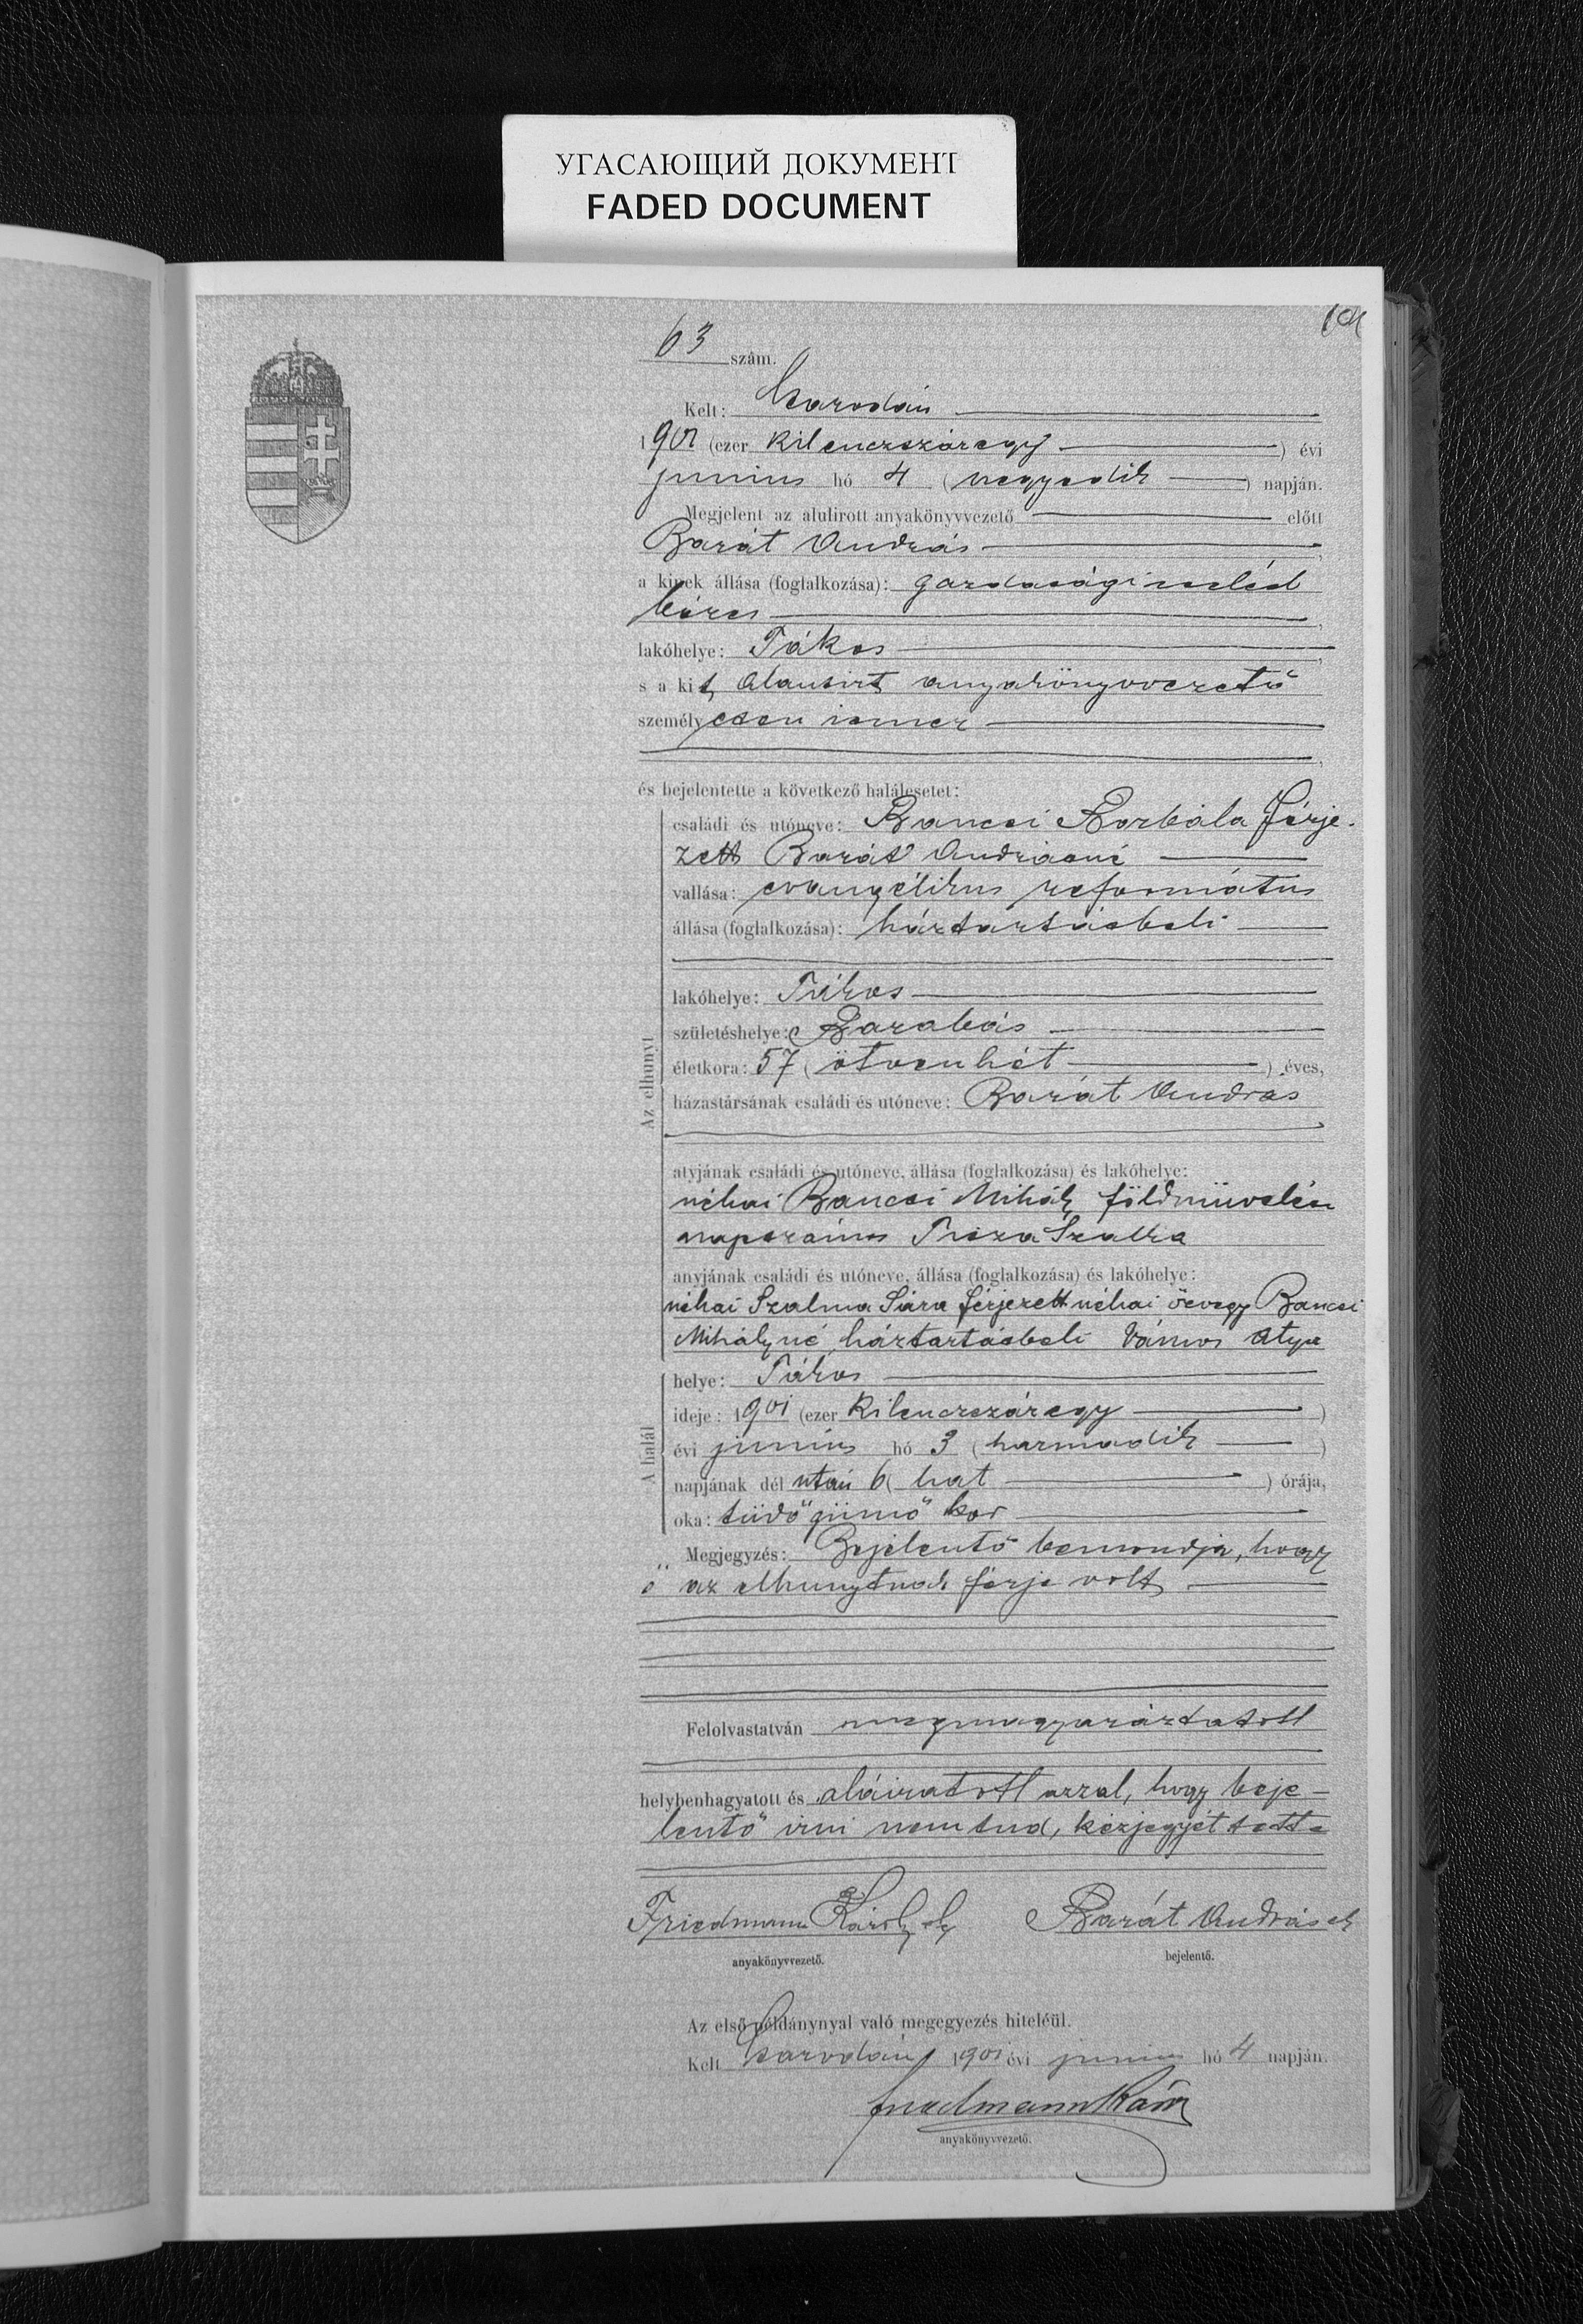 УГАСАЮЩИЙ ДОКУМЕНТ
FADED DOCUMENT
63 szám.
Kelt: Csarodán
1901 (ezer kilenczszázegy) évi
junius hó 4 (negyedik) napján.
Megjelent az alulirott anyakönyvvezető előtt
Barát András,
a kinek állása (foglalkozása): gazdasági cseléd
béres,
lakóhelye: Tákos,
s a kit, alantirt anyakönyvvezető
személyesen ismer
és bejelentette a következő halálesetet:
Az elhunyt
családi és utóneve: Bancsi Borbála férje-
zett Barát Andrásné
vallása: evangélikus református
állása (foglalkozása): háztartásbeli
lakóhelye: Tákos
születéshelye: Barabás
életkora: 57 (ötvenhét) éves,
házastársának családi és utóneve: Barát András
atyjának családi és utóneve, állása (foglalkozása) és lakóhelye:
néhai Bancsi Mihály földmüvelési
napszámos Tisza Szalka
anyjának családi és utóneve, állása (foglalkozása) és lakóhelye:
néhai Szalma Sára férjezett néhai özvegy Bancsi
Mihályné háztartásbeli Vámos Atya
A halál
helye: Tákos
ideje: 1901 (ezer kilenczszázegy)
évi junius hó 3 (harmadik)
napjának dél után 6 (hat) órája,
oka: tüdő gümő kor
Megjegyzés: Bejelentő bemondja, hogy
ő az elhunytnak férje volt
Felolvastatván megmagyaráztatott
helybenhagyatott és aláiratott azzal, hogy beje-
lentő irni nem tud, kézjegyét tette
Friedmann Károly Barát András
anyakönyvvezető. bejelentő.
Az első példánynyal való megegyezés hiteléül.
Kelt Csarodán, 1901 évi junius hó 4 napján.
Friedmann Károly
anyakönyvvezető.